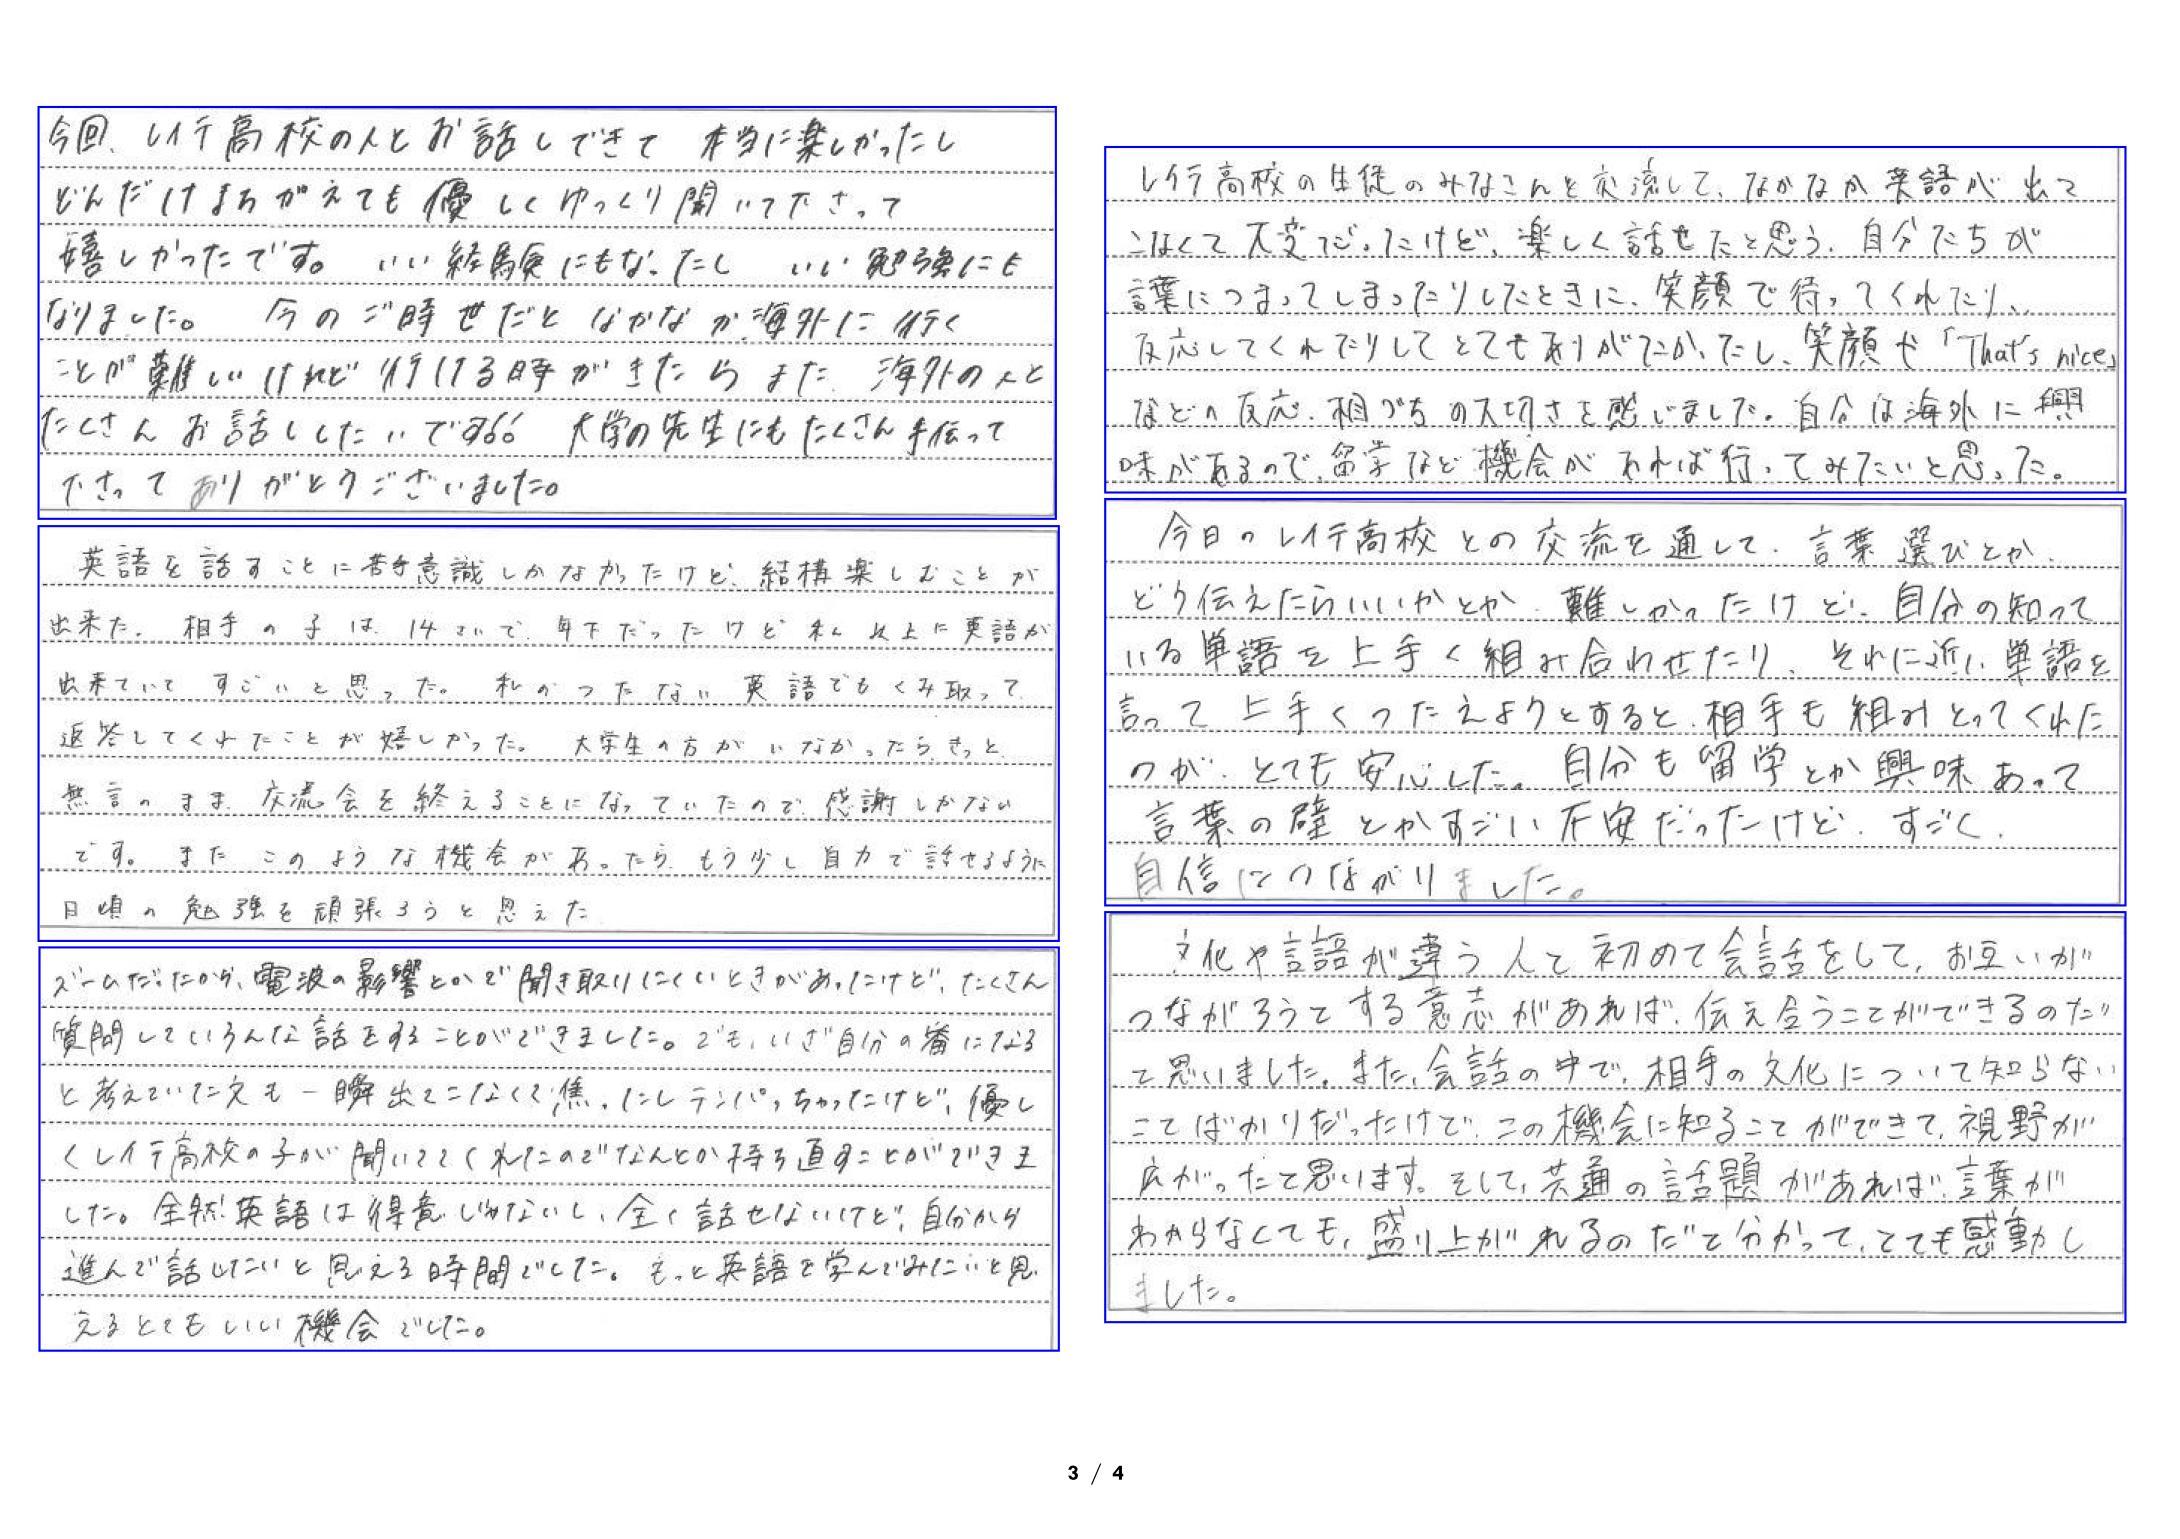 今回、レイテ高校の人とお話しできて 本当に楽しかったし
どんだけまちがえても優しくゆっくり聞いて下さって
嬉しかったです。 いい経験にもなったし いい勉強にも
なりました。 今のご時世だと なかなか海外に行く
ことが難しいけれど行ける時がきたらまた 海外の人と
たくさん お話ししたいです。 大学の先生にもたくさん手伝って
下さって ありがとうございました。
英語を話すことに苦手意識しかなかったけど、結構楽しむことが
出来た。相手の子は、14さいで、年下だったけど私以上に英語が
出来ていて すごいと思った。私のつたない英語でもくみ取って
返答してくれたことが嬉しかった。 大学生の方がいなかったら、きっと
無言のまま、交流会を終えることになっていたので、感謝しかない
です。また このような機会があったら、もう少し自力で話せるように
日頃の勉強を頑張ろうと思えた
ズームだったから、電波の影響とかで聞き取りにくいときがあったけど、たくさん
質問していろんな話をすることができました。でも、いざ自分の番になる
と考えていた文も一瞬出てこなくて、焦ったしテンパっちゃったけど、優し
くレイテ高校の子が聞いててくれたのでなんとか持ち直すことができま
した。全然英語は得意じゃないし、全く話せないけど、自分から
進んで話したいと思える時間でした。もっと英語を学んでみたいと思
えるとてもいい機会でした。
レイテ高校の生徒のみなさんと交流して、なかなか英語が出て
こなくて大変だったけど、楽しく話せたと思う。自分たちが
言葉につまってしまったりしたときに、笑顔で待ってくれたり、
反応してくれたりしてとてもありがたかったし、笑顔や「That's nice」
などの反応、相づちの大切さを感じました。自分は海外に興
味があるので、留学など機会があれば行ってみたいと思った。
今日のレイテ高校との交流を通して、言葉選びとか、
どう伝えたらいいかとか、難しかったけど、自分の知って
いる単語を上手く組み合わせたり、それに近い単語を
言って上手くつたえようとすると、相手も組みとってくれた
のが、とても安心した。自分も留学とか興味あって
言葉の壁とかすごい不安だったけど、すごく、
自信につながりました。
文化や言語が違う人と初めて会話をして、お互いが
つながろうとする意志があれば、伝え合うことができるのだ
と思いました。また、会話の中で、相手の文化について知らない
ことばかりだったけど、この機会に知ることができて、視野が
広がったと思います。そして、共通の話題があれば、言葉が
わからなくても、盛り上がれるのだと分かって、とても感動し
ました。
3 / 4